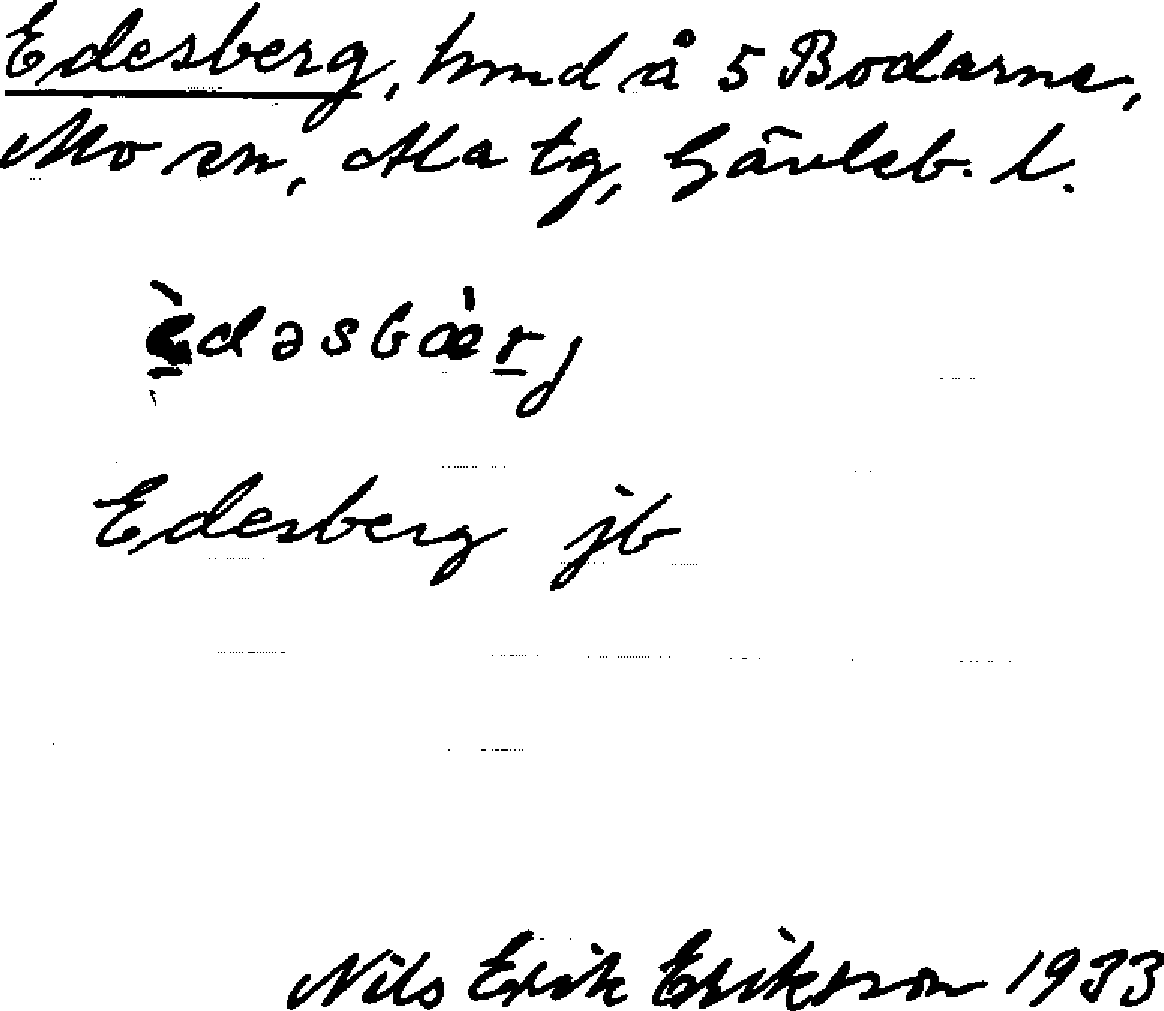 Edesberg, hmd å 5 Bodarne,
Mo sn, Ala tg, Gävleb. l.
è̱dəsbæ̀ṟj
Edesberg jb
Nils Erik Eriksson 1933